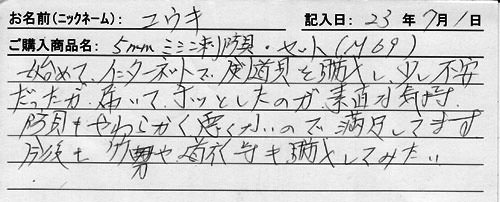 お名前(ニックネーム): ユウキ 記入日: 23 年 7 月 1 日
ご購入商品名: 5mmミシン刺防具・セット(M69)
始めて、インターネットで、剣道具を購入し、少し不安
だったが、届いて、ホッとしたのが、素直な気持。
防具もやわらかく悪くないので満足してます
今後も 小勢や 道衣等も購入してみたい